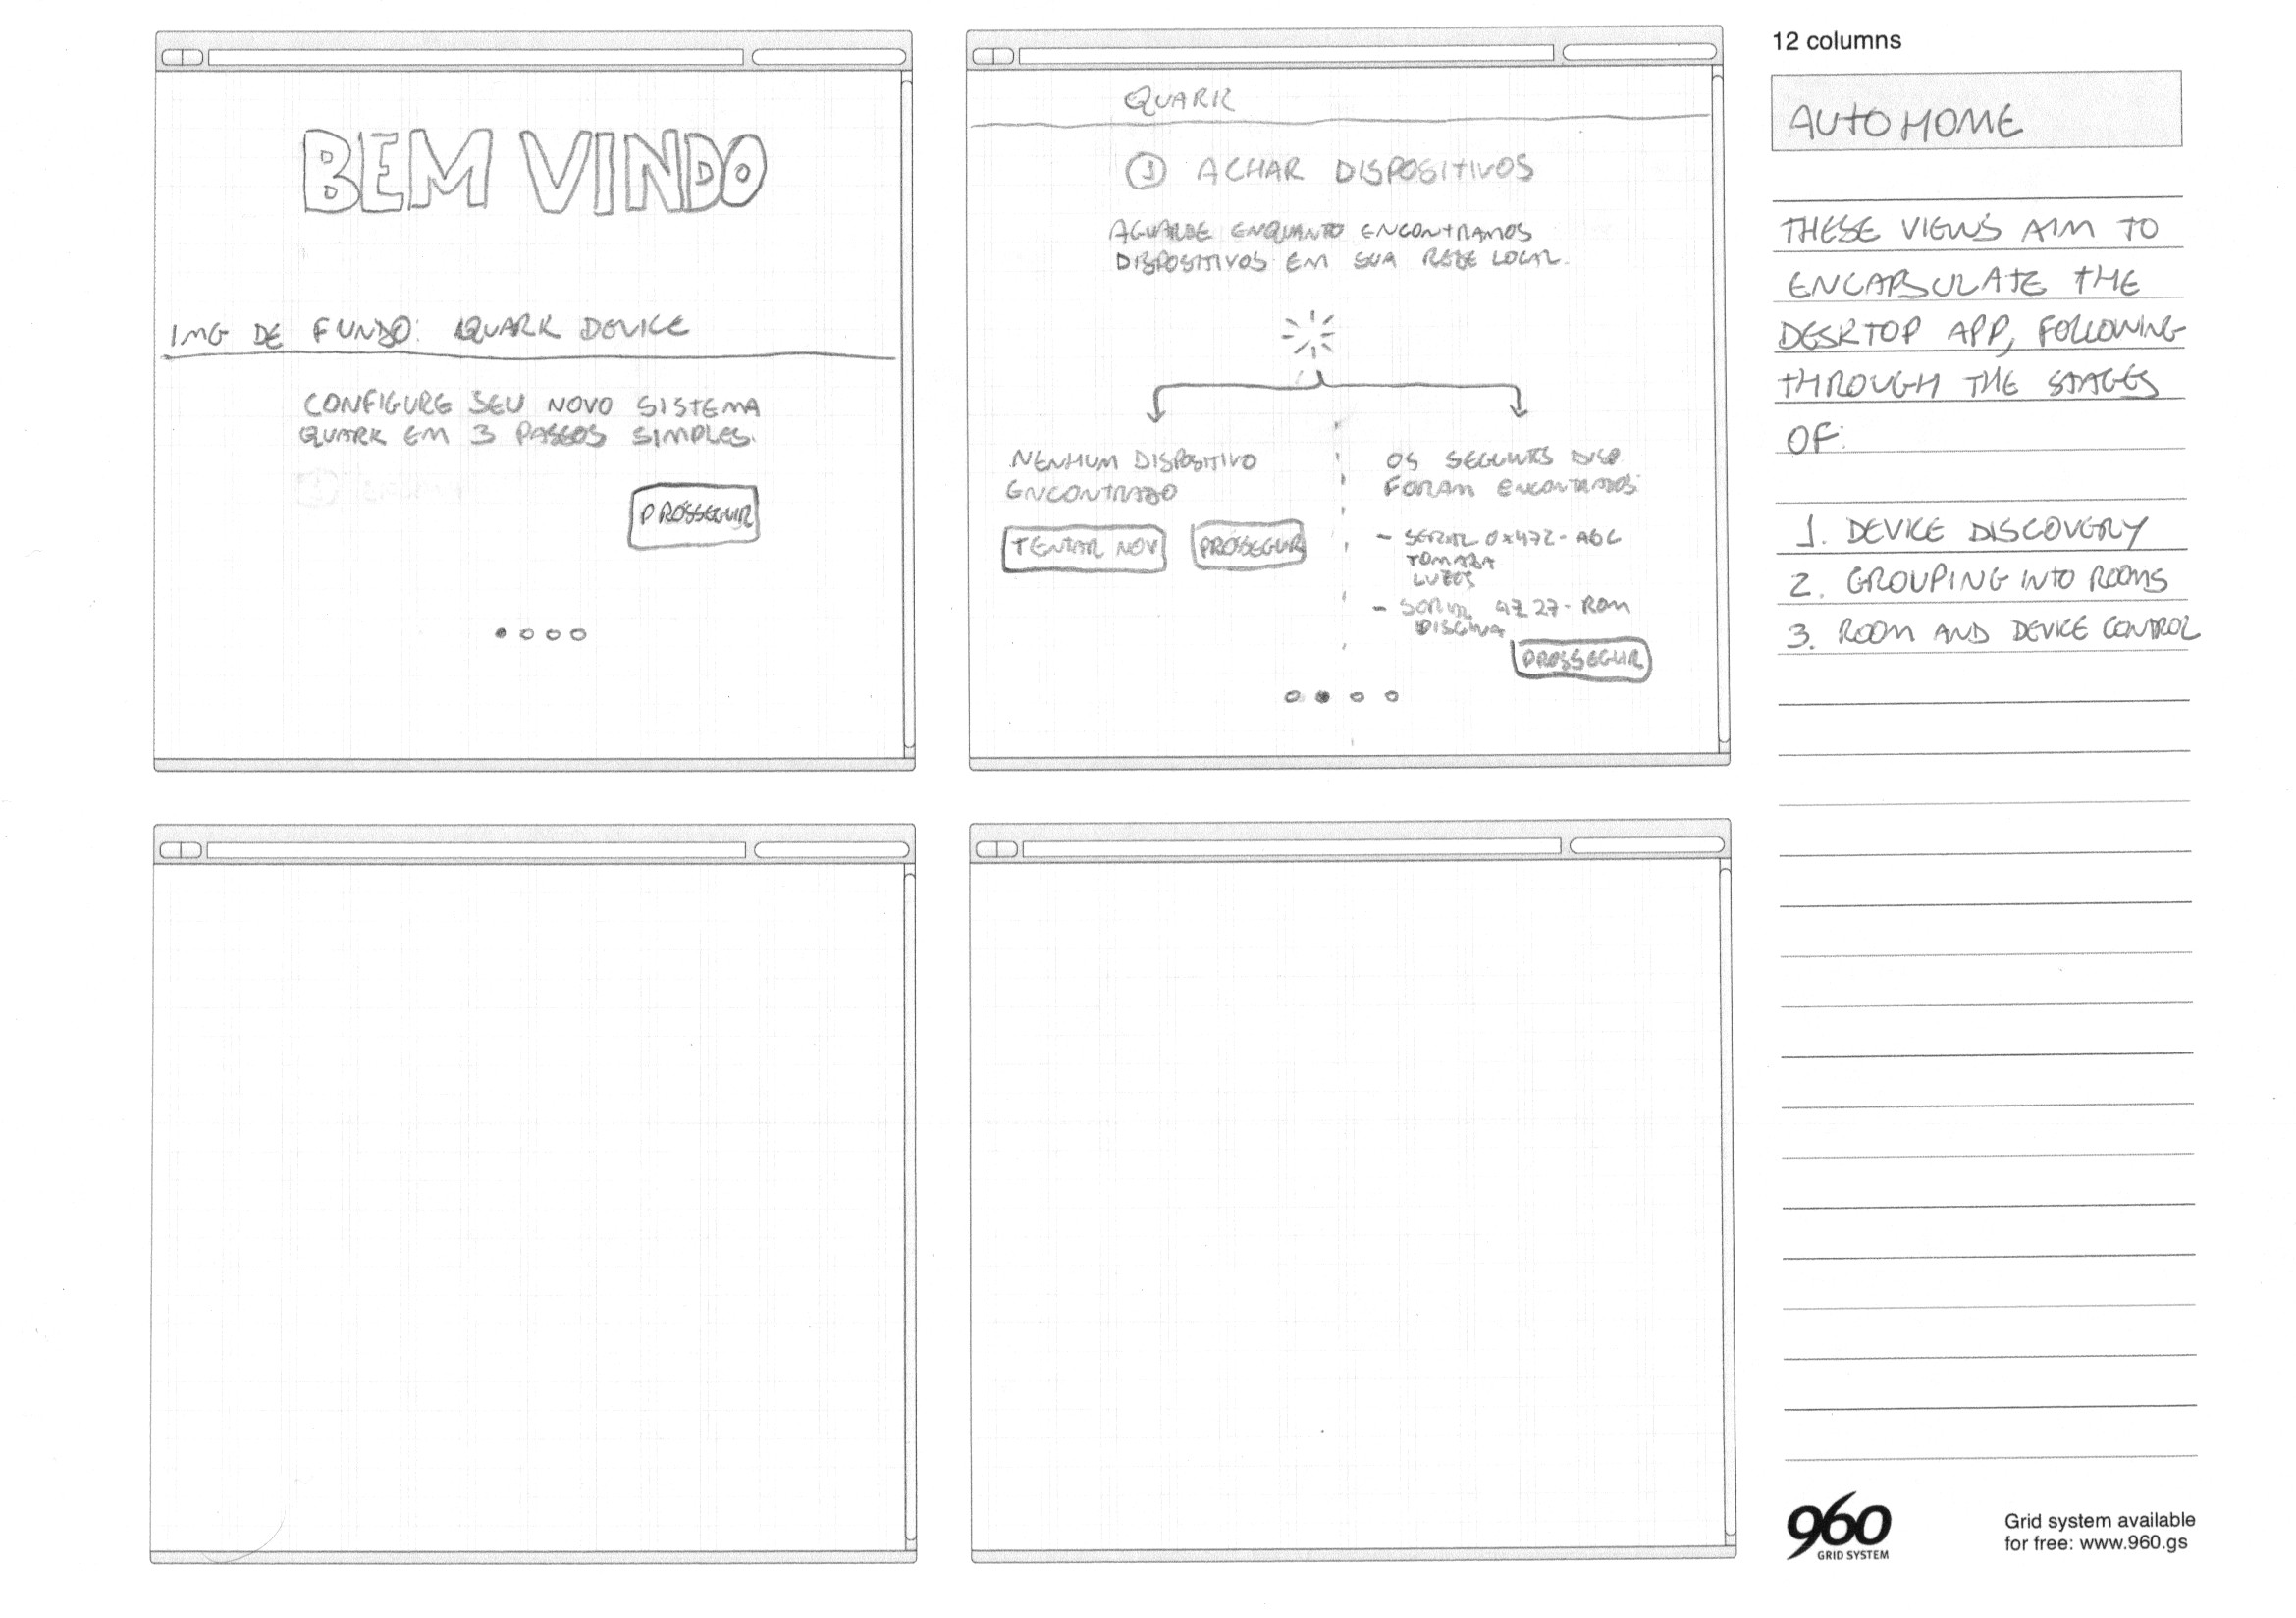 BEM VINDO
IMG DE FUNDO: QUARK DEVICE
CONFIGURE SEU NOVO SISTEMA
QUARK EM 3 PASSOS SIMPLES.
PROSSEGUIR
QUARK
1 ACHAR DISPOSITIVOS
AGUARDE ENQUANTO ENCONTRAMOS
DISPOSITIVOS EM SUA REDE LOCAL.
NENHUM DISPOSITIVO
ENCONTRADO
TENTAR NOV
PROSSEGUIR
OS SEGUINTES DISP.
FORAM ENCONTRADOS:
- SERIAL 0x472 - ABC
TOMADA
LUZES
- SERIAL 4Z 27 - ROM
PROSSEGUIR
12 columns
AUTOHOME
THESE VIEWS AIM TO
ENCAPSULATE THE
DESKTOP APP, FOLLOWING
THROUGH THE STAGES
OF:
1. DEVICE DISCOVERY
2. GROUPING INTO ROOMS
3. ROOM AND DEVICE CONTROL
960
GRID SYSTEM
Grid system available
for free: www.960.gs